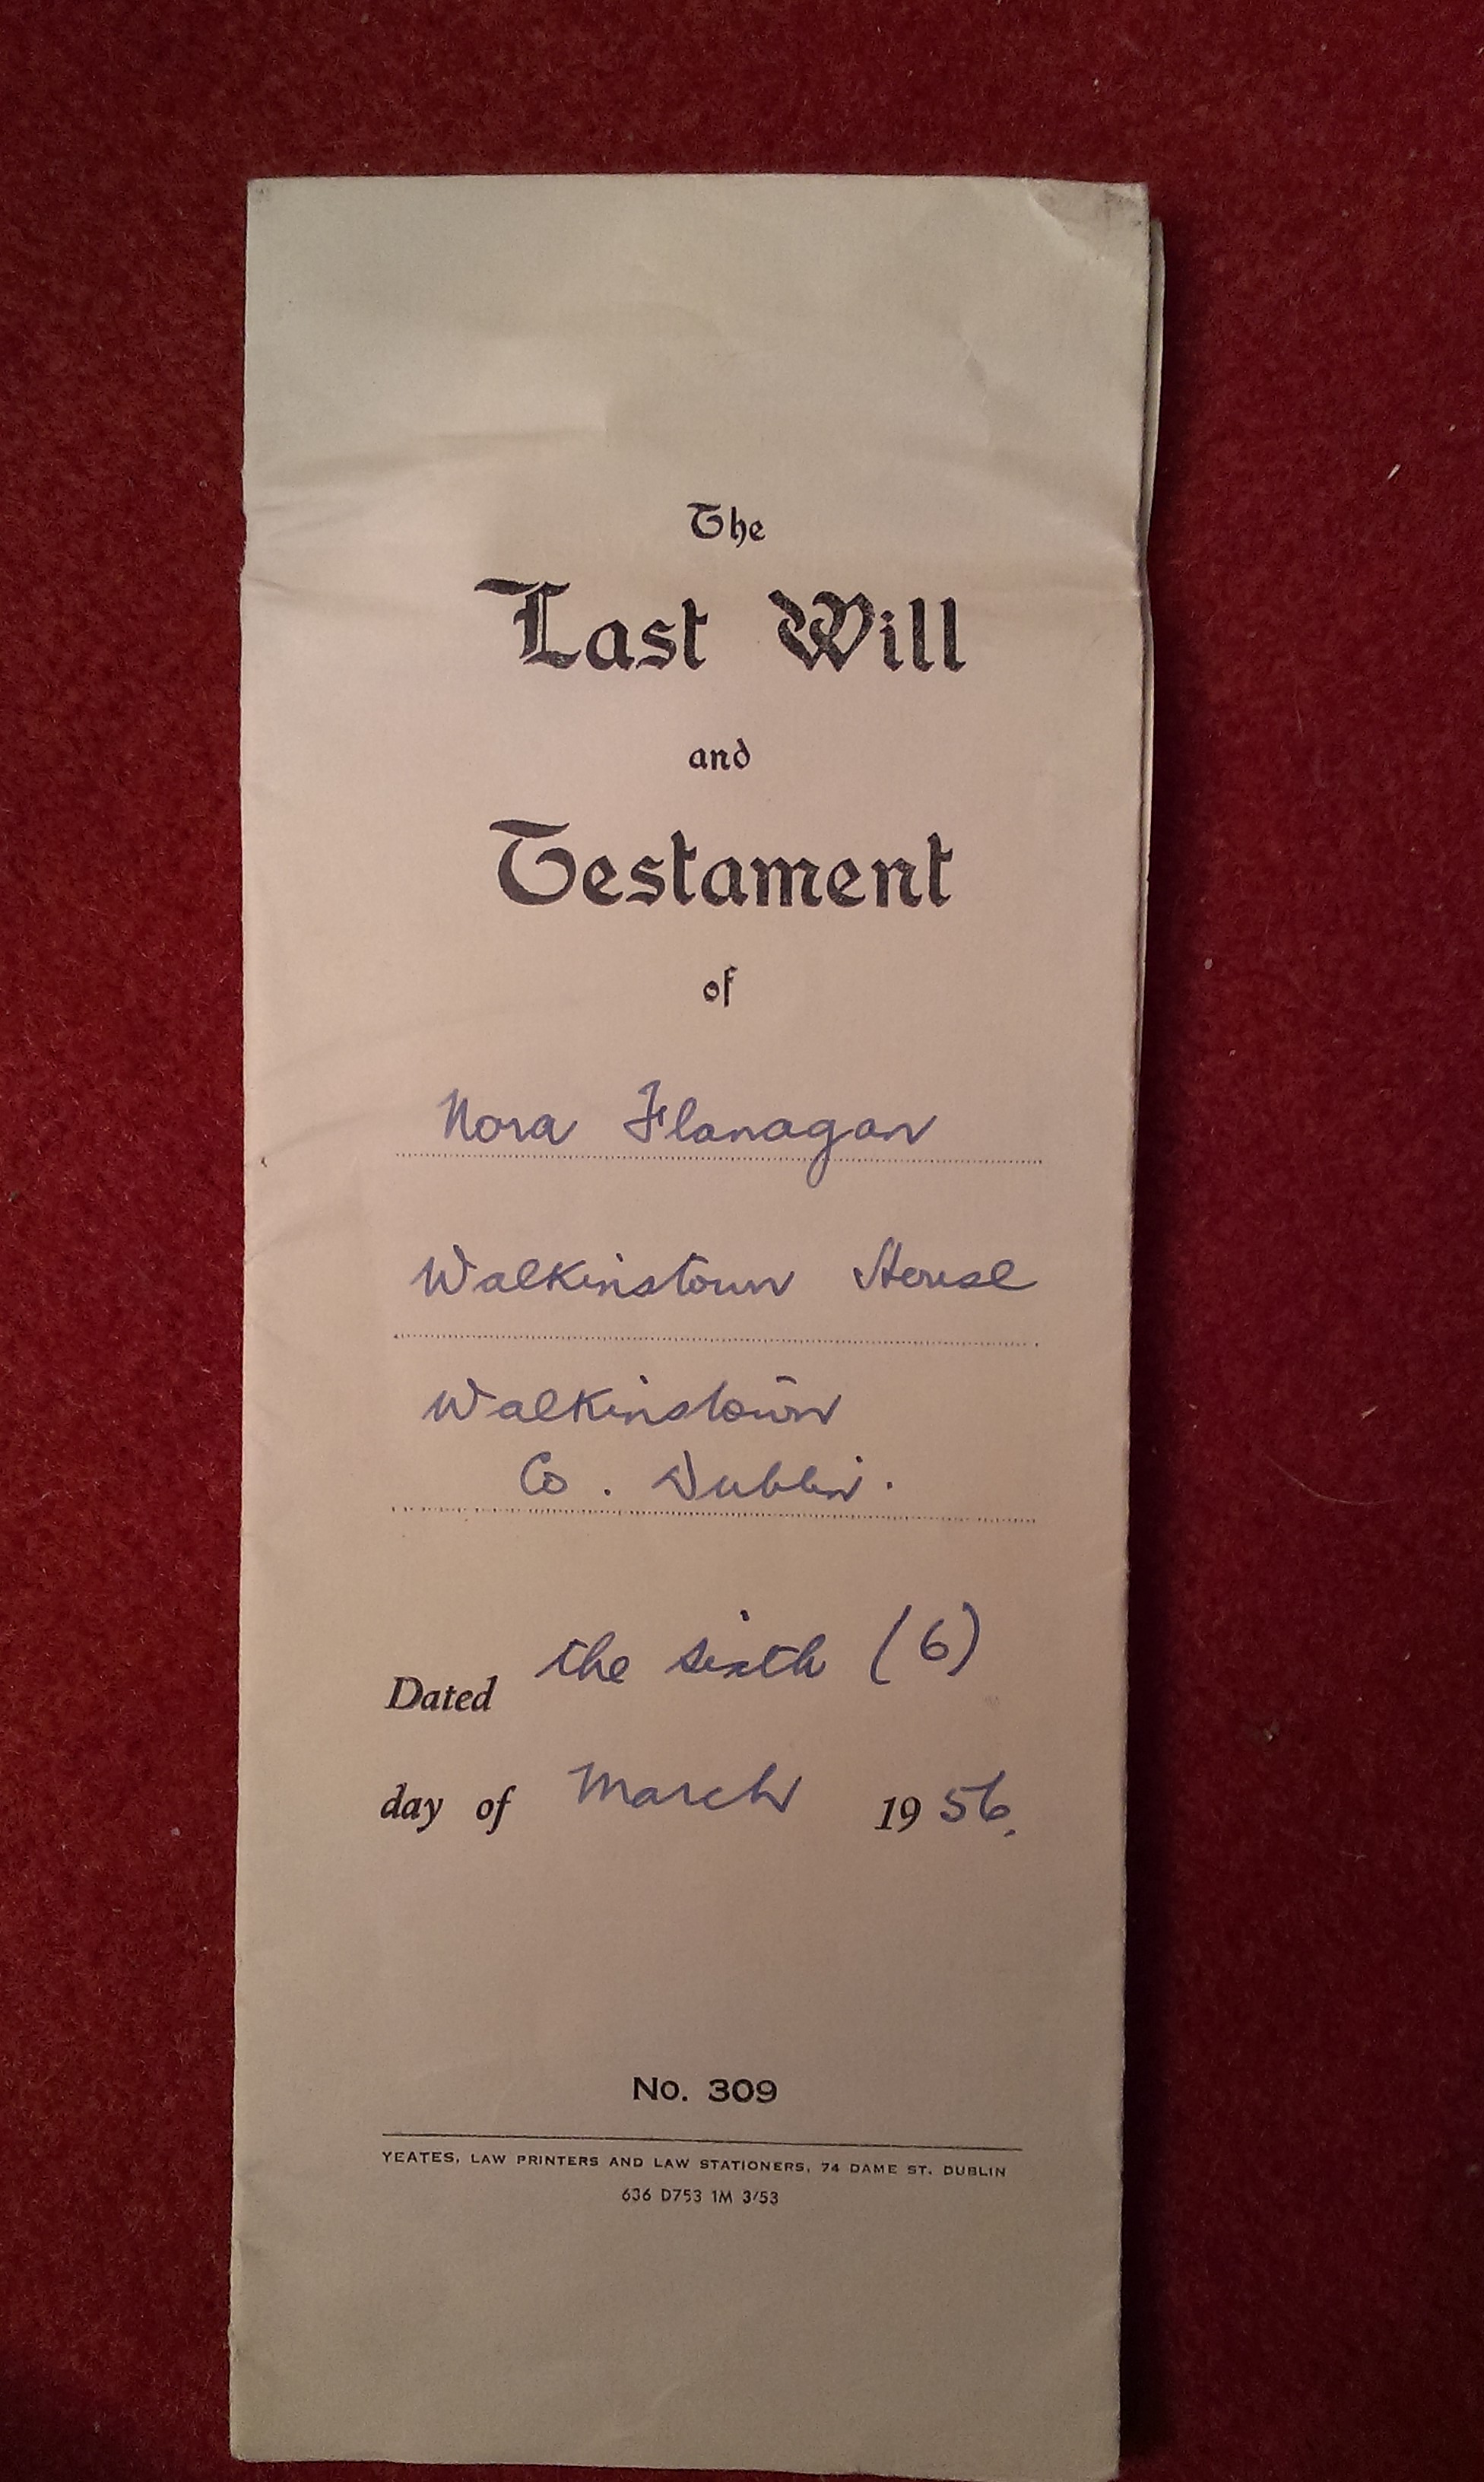 The
Last Will
and
Testament
of
Nora Flanagan
Walkinstown House
Walkinstown
Co. Dublin.
Dated the sixth (6)
day of March 1956.
No. 309
YEATES, LAW PRINTERS AND LAW STATIONERS, 74 DAME ST. DUBLIN
636 D753 1M 3/53